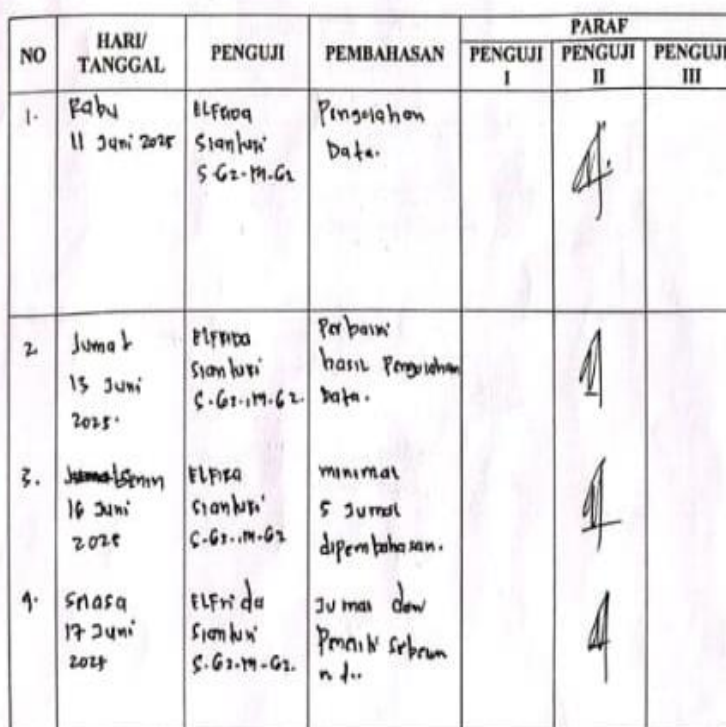 NO
HARI/
TANGGAL
PENGUJI
PEMBAHASAN
PARAF
PENGUJI
I
PENGUJI
II
PENGUJI
III
1.
Rabu
11 Juni 2025
ELFRIDA
Sianturi
S.Gz.M.Gz
Pengolahan
Data.
2
Jumat
13 Juni
2025.
ELFRIDA
Sianturi
S.Gz.,M.Gz.
Perbaiki
hasil Pengolahan
Data.
3.
Senin
16 Juni
2025
Sianturi
S.Gz.,M.Gz
minimal
5 Jurnal
dipembahasan.
4.
17 Juni
ELFrida
Sianturi
S.Gz.M.Gz.